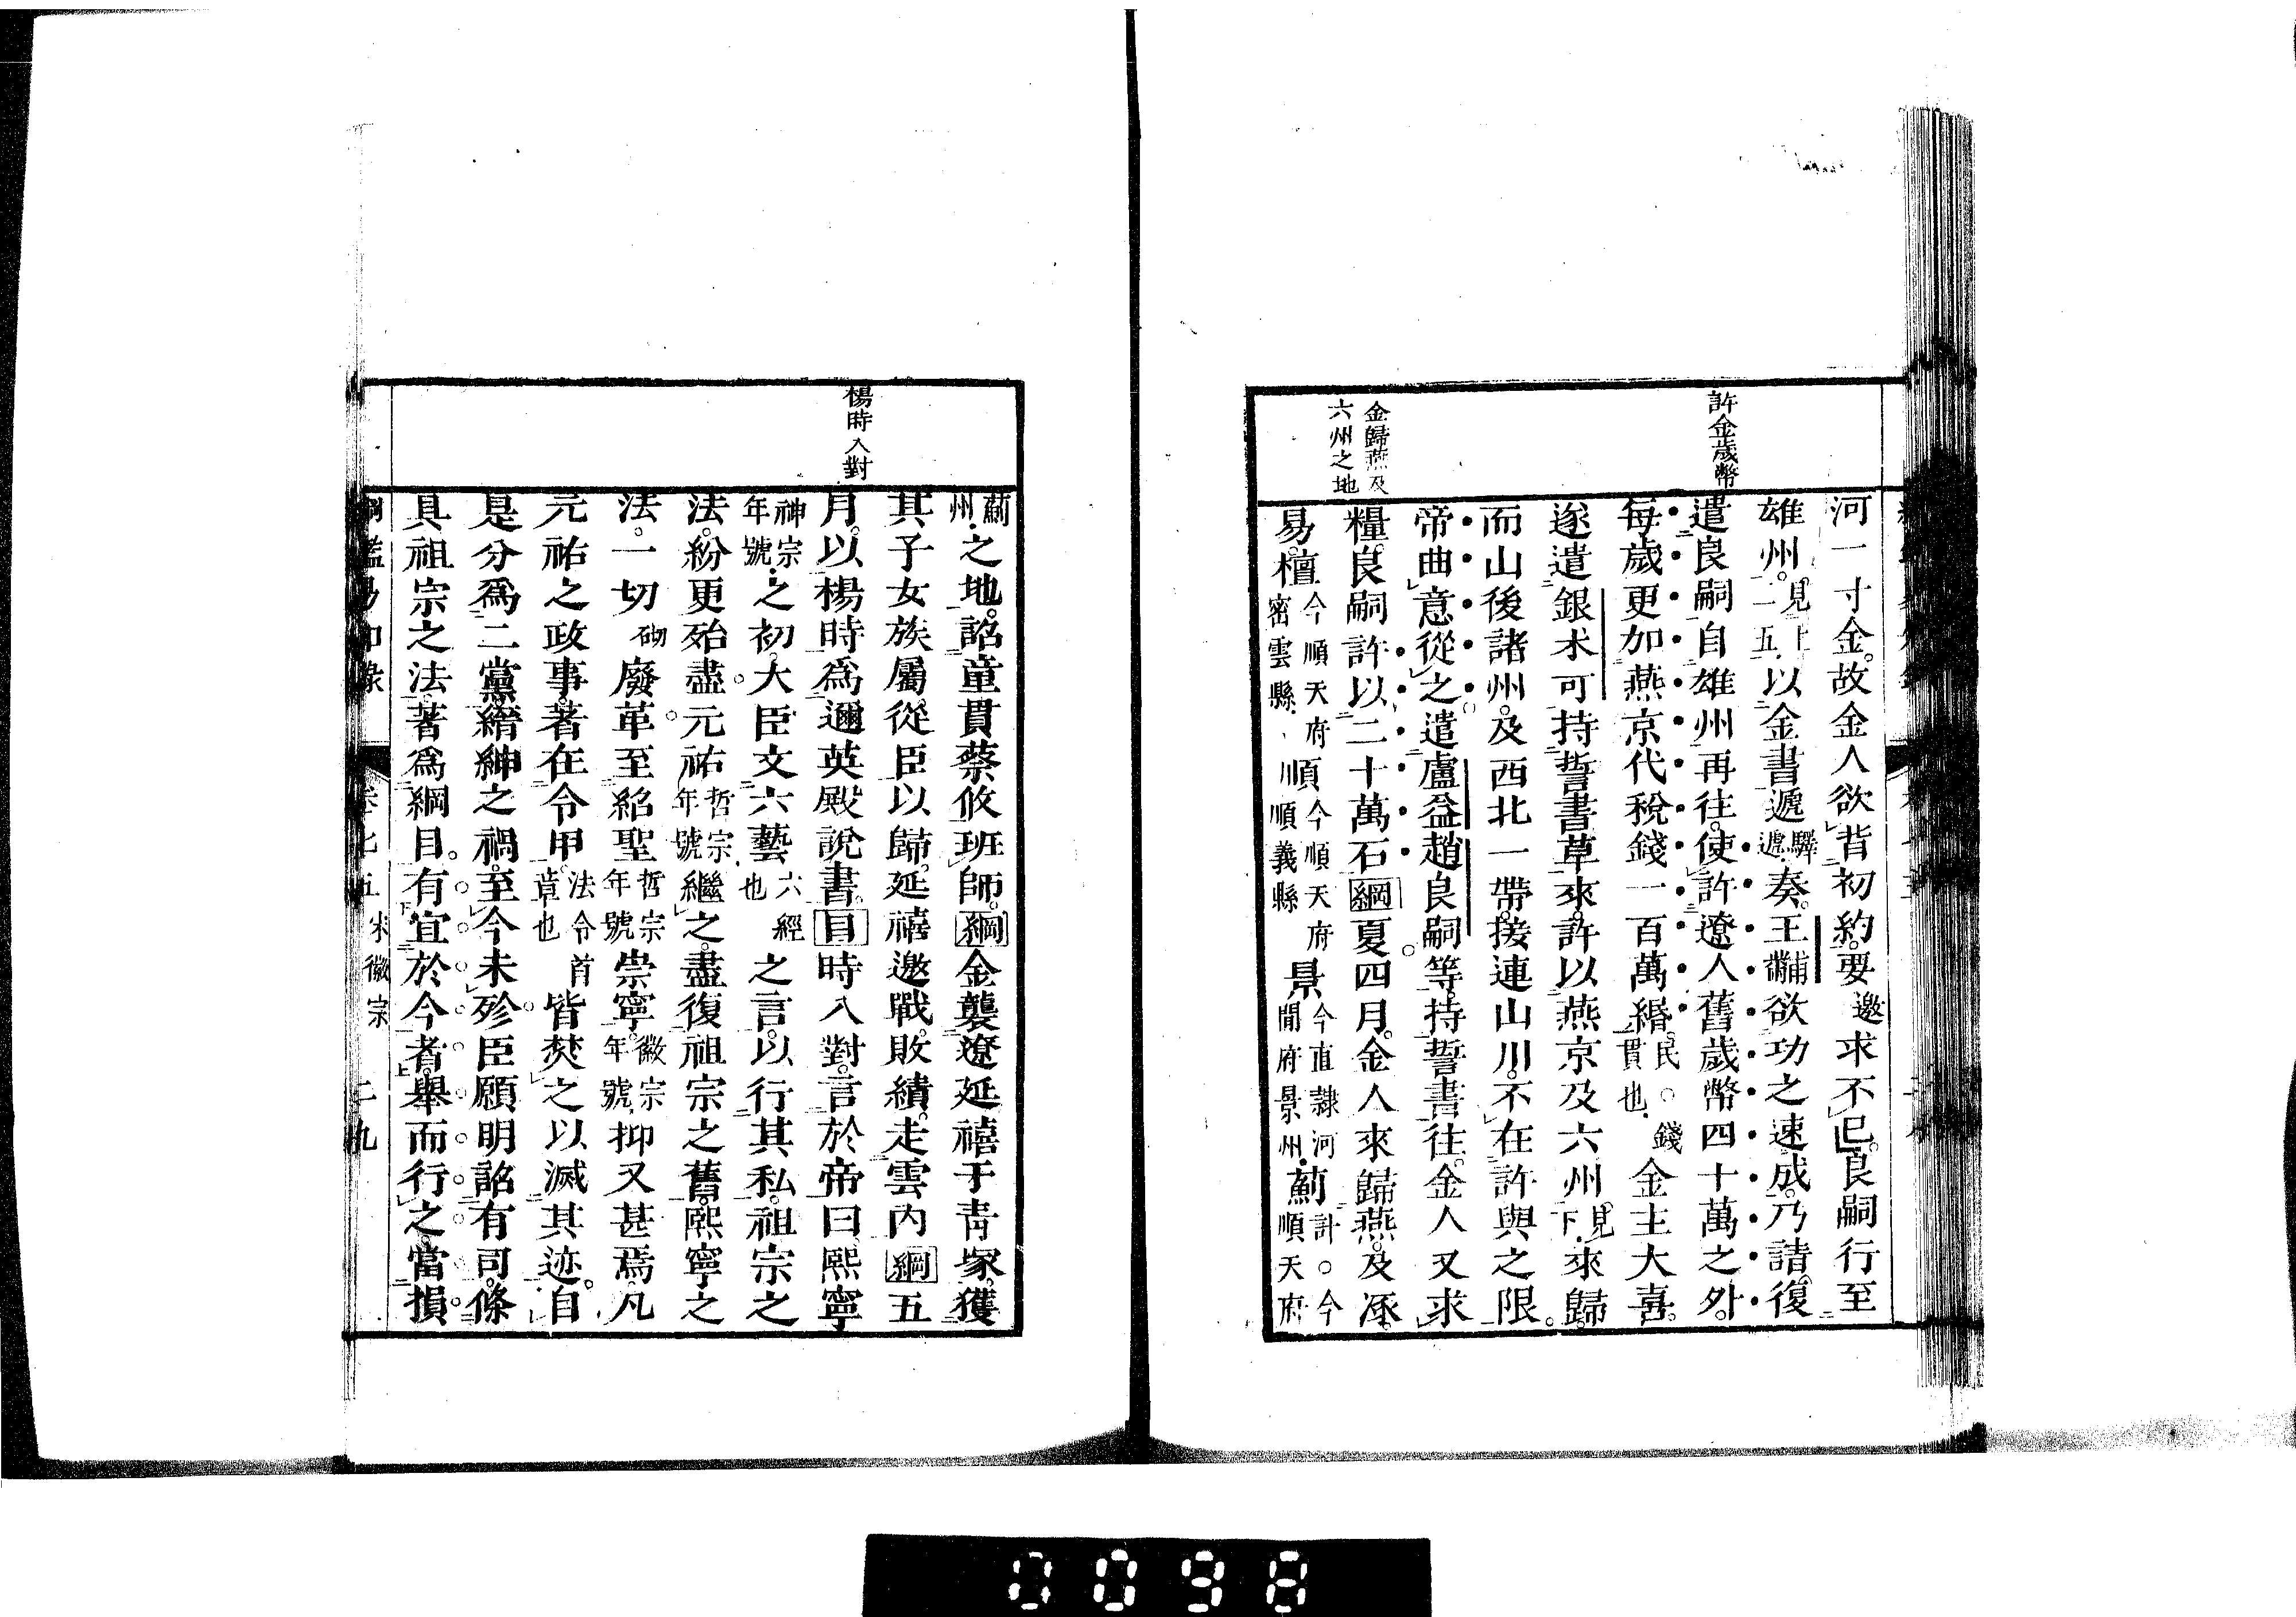 許金歲幣
金歸燕及
六州之地
河一寸金。故金人欲背初約。要邀求不已。良嗣行至
雄州。見上一五。以金書遞驛遞。奏。王黼欲功之速成。乃請。復
遣良嗣自雄州再往。使許遼人舊歲幣四十萬之外。
每歲更加燕京代稅錢一百萬緡。民。○錢貫也。金主大喜。
遂遣銀朮可持誓書草來。許以燕京及六州見下。來歸。
而山後諸州。及西北一帶。接連山川。不在許與之限。
帝曲意從之。遣盧益趙良嗣等。持誓書往。金人又求
糧。良嗣許以二十萬石。綱夏四月。金人來歸燕。及涿。
易。檀今順天府密雲縣。順今順天府順義縣景今直隷河間府景州。薊計。○今順天府
薊州。之地。詔童貫蔡攸班師。綱金襲遼延禧于靑塚。獲
其子女族屬。從臣以歸。延禧邀戰。敗績。走雲内綱五
月。以楊時爲邇英殿說書。目時入對。言於帝曰。熙寧
神宗年號。之初。大臣文六藝六經也之言。以行其私。祖宗之
法。紛更殆盡。元祐哲宗年號。繼之。盡復祖宗之舊。熙寧之
法。一切砌廢革至紹聖哲宗年號崇寧。徽宗年號。抑又甚焉。凡
元祐之政事。著在令甲。法令首章也皆焚之以滅其迹。自
是分爲二黨。縉紳之禍。至今未殄。臣願明詔有司。條
具祖宗之法。著爲綱目。有宜於今者。舉而行之。當損
楊時入對
綱鑑易知錄 卷七五 宋徽宗 二九
0098